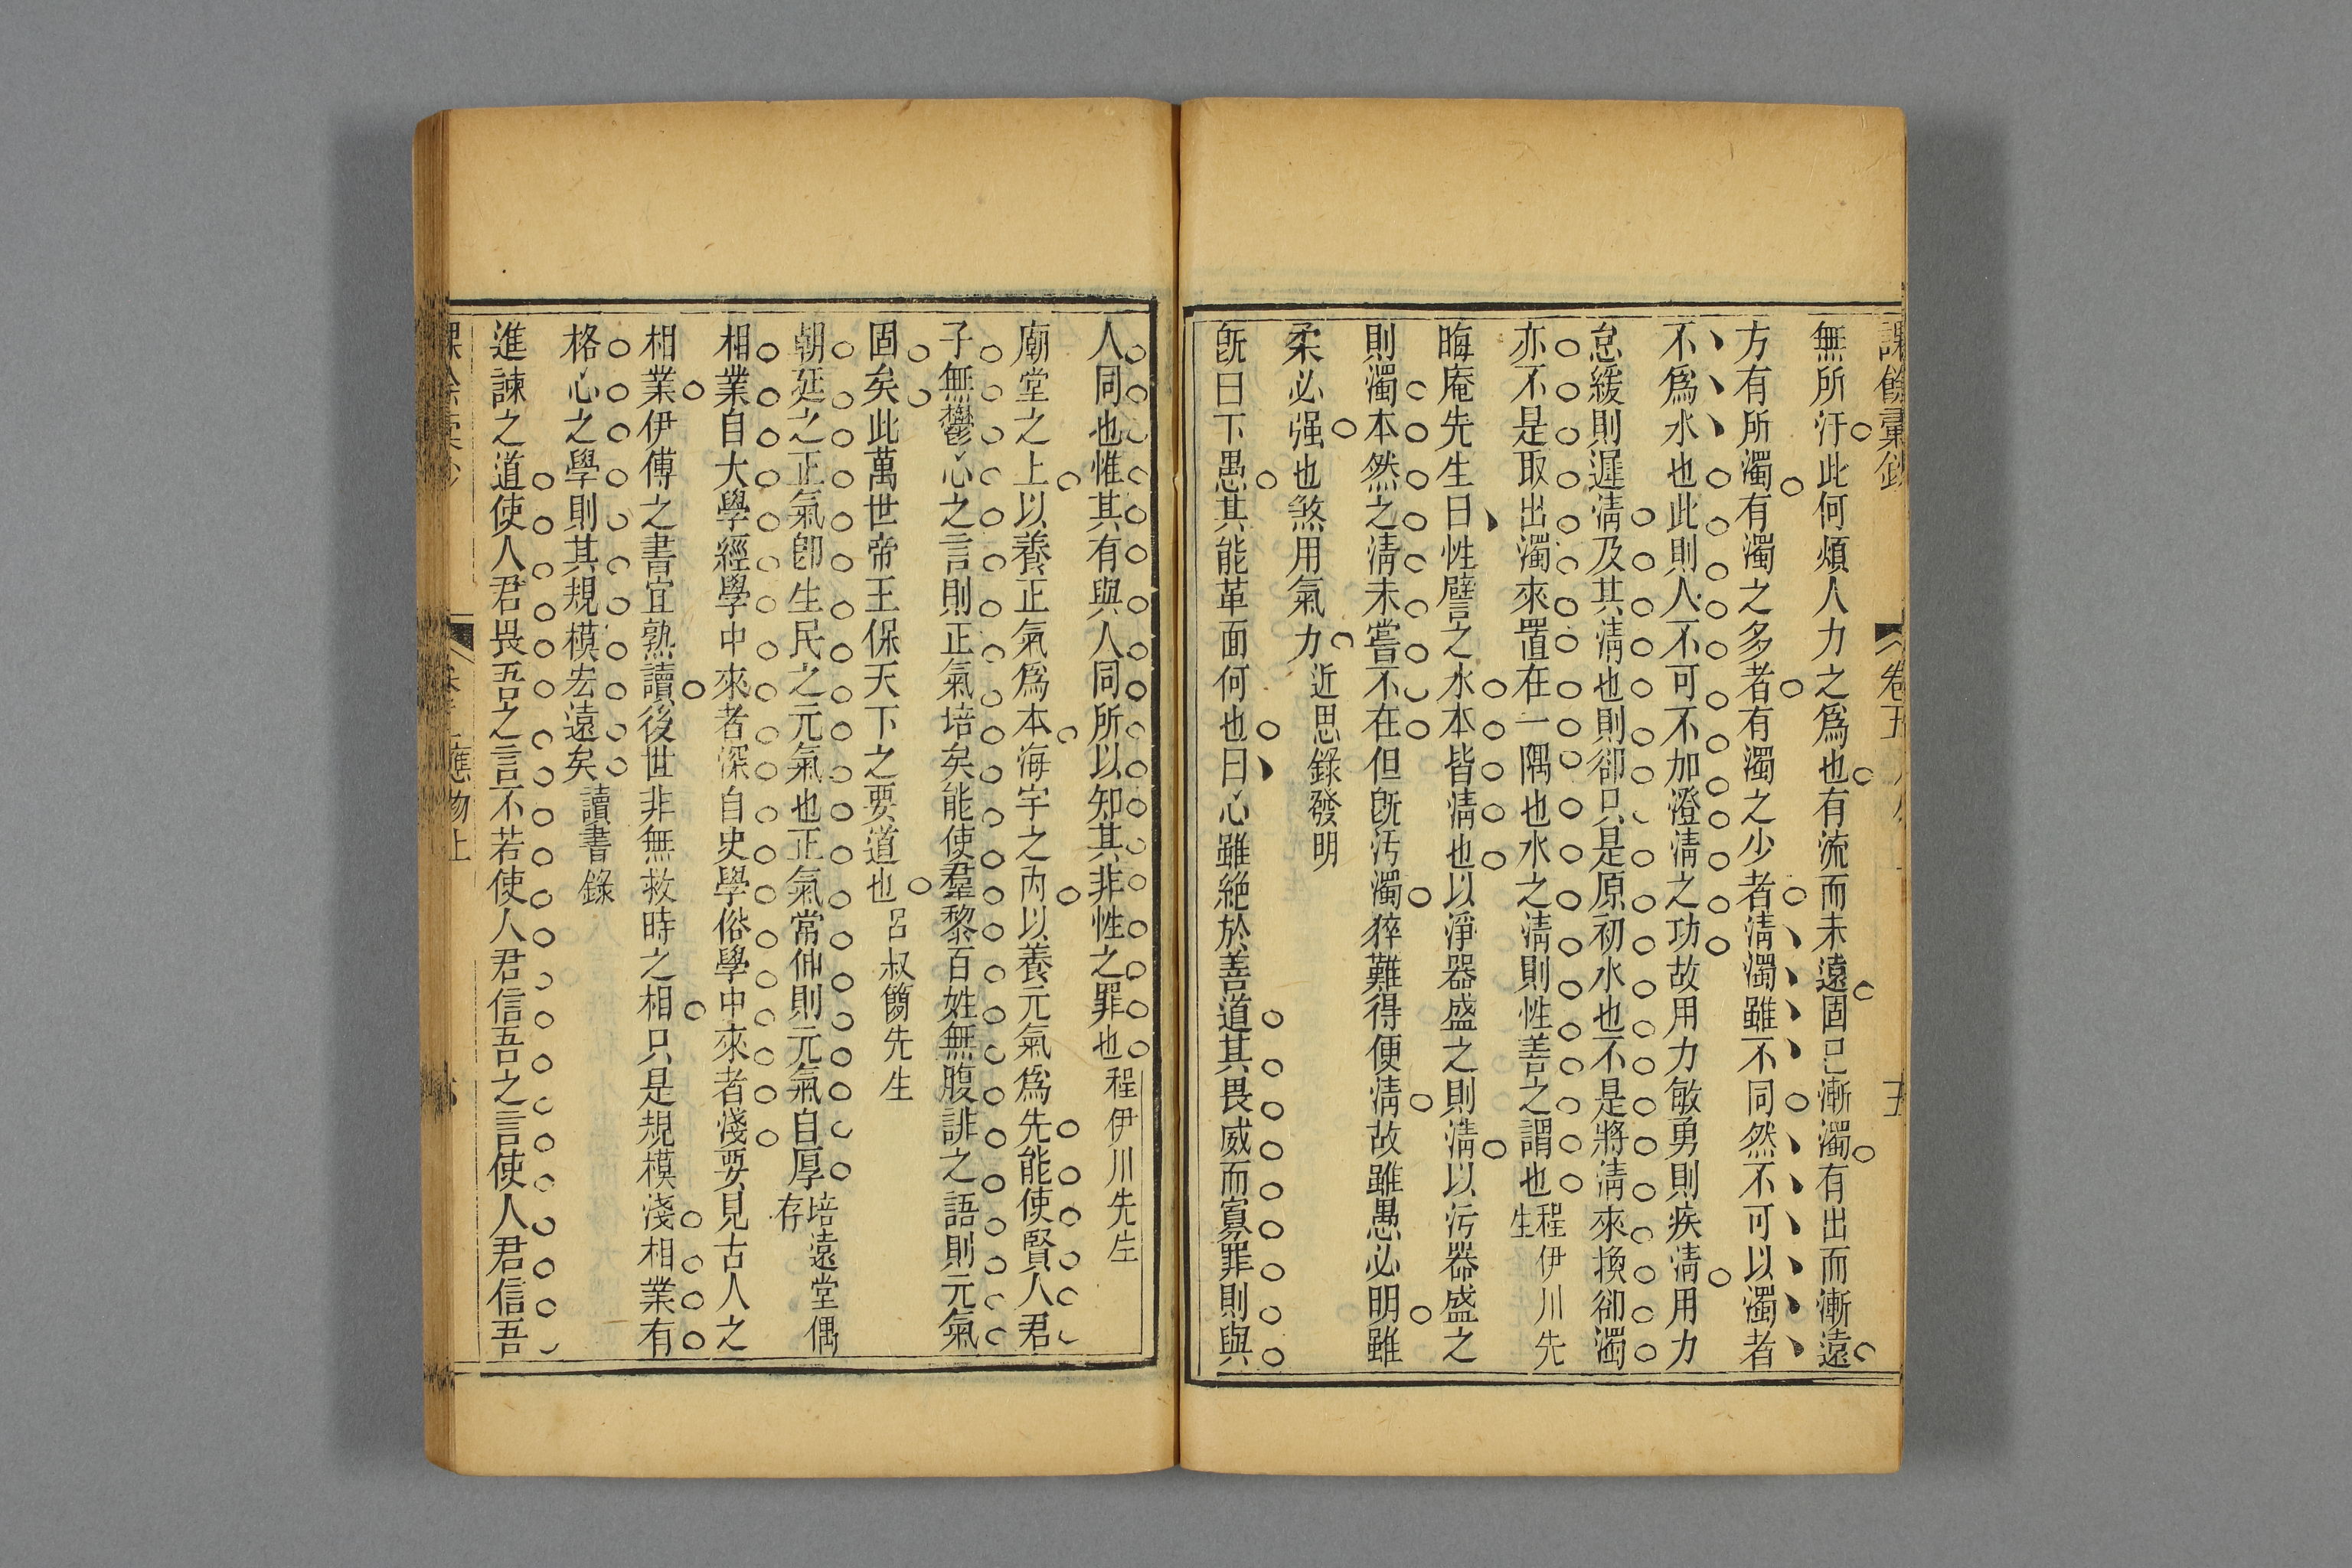 課餘彙鈔 卷五 五
無所汙此何煩人力之爲也有流而未遠固已漸濁有出而漸遠
方有所濁有濁之多者有濁之少者淸濁雖不同然不可以濁者
不爲水也此則人不可不加澄淸之功故用力敏勇則疾淸用力
怠緩則遲淸及其淸也則卻只是原初水也不是將淸來換卻濁
亦不是取出濁來置在一隅也水之淸則性善之謂也程伊川先生
晦庵先生曰性譬之水本皆淸也以淨器盛之則淸以污器盛之
則濁本然之淸未嘗不在但旣汚濁猝難得便淸故雖愚必明雖
柔必强也煞用氣力近思錄發明
旣曰下愚其能革面何也曰心雖絕於善道其畏威而寡罪則與
人同也惟其有與人同所以知其非性之罪也程伊川先生
廟堂之上以養正氣爲本海宇之內以養元氣爲先能使賢人君
子無鬱心之言則正氣培矣能使羣黎百姓無腹誹之語則元氣
固矣此萬世帝王保天下之要道也呂叔簡先生
朝廷之正氣卽生民之元氣也正氣常伸則元氣自厚培遠堂偶存
相業自大學經學中來者深自史學俗學中來者淺要見古人之
相業伊傅之書宜熟讀後世非無救時之相只是規模淺相業有
格心之學則其規模宏遠矣讀書錄
進諫之道使人君畏吾之言不若使人君信吾之言使人君信吾
應物上